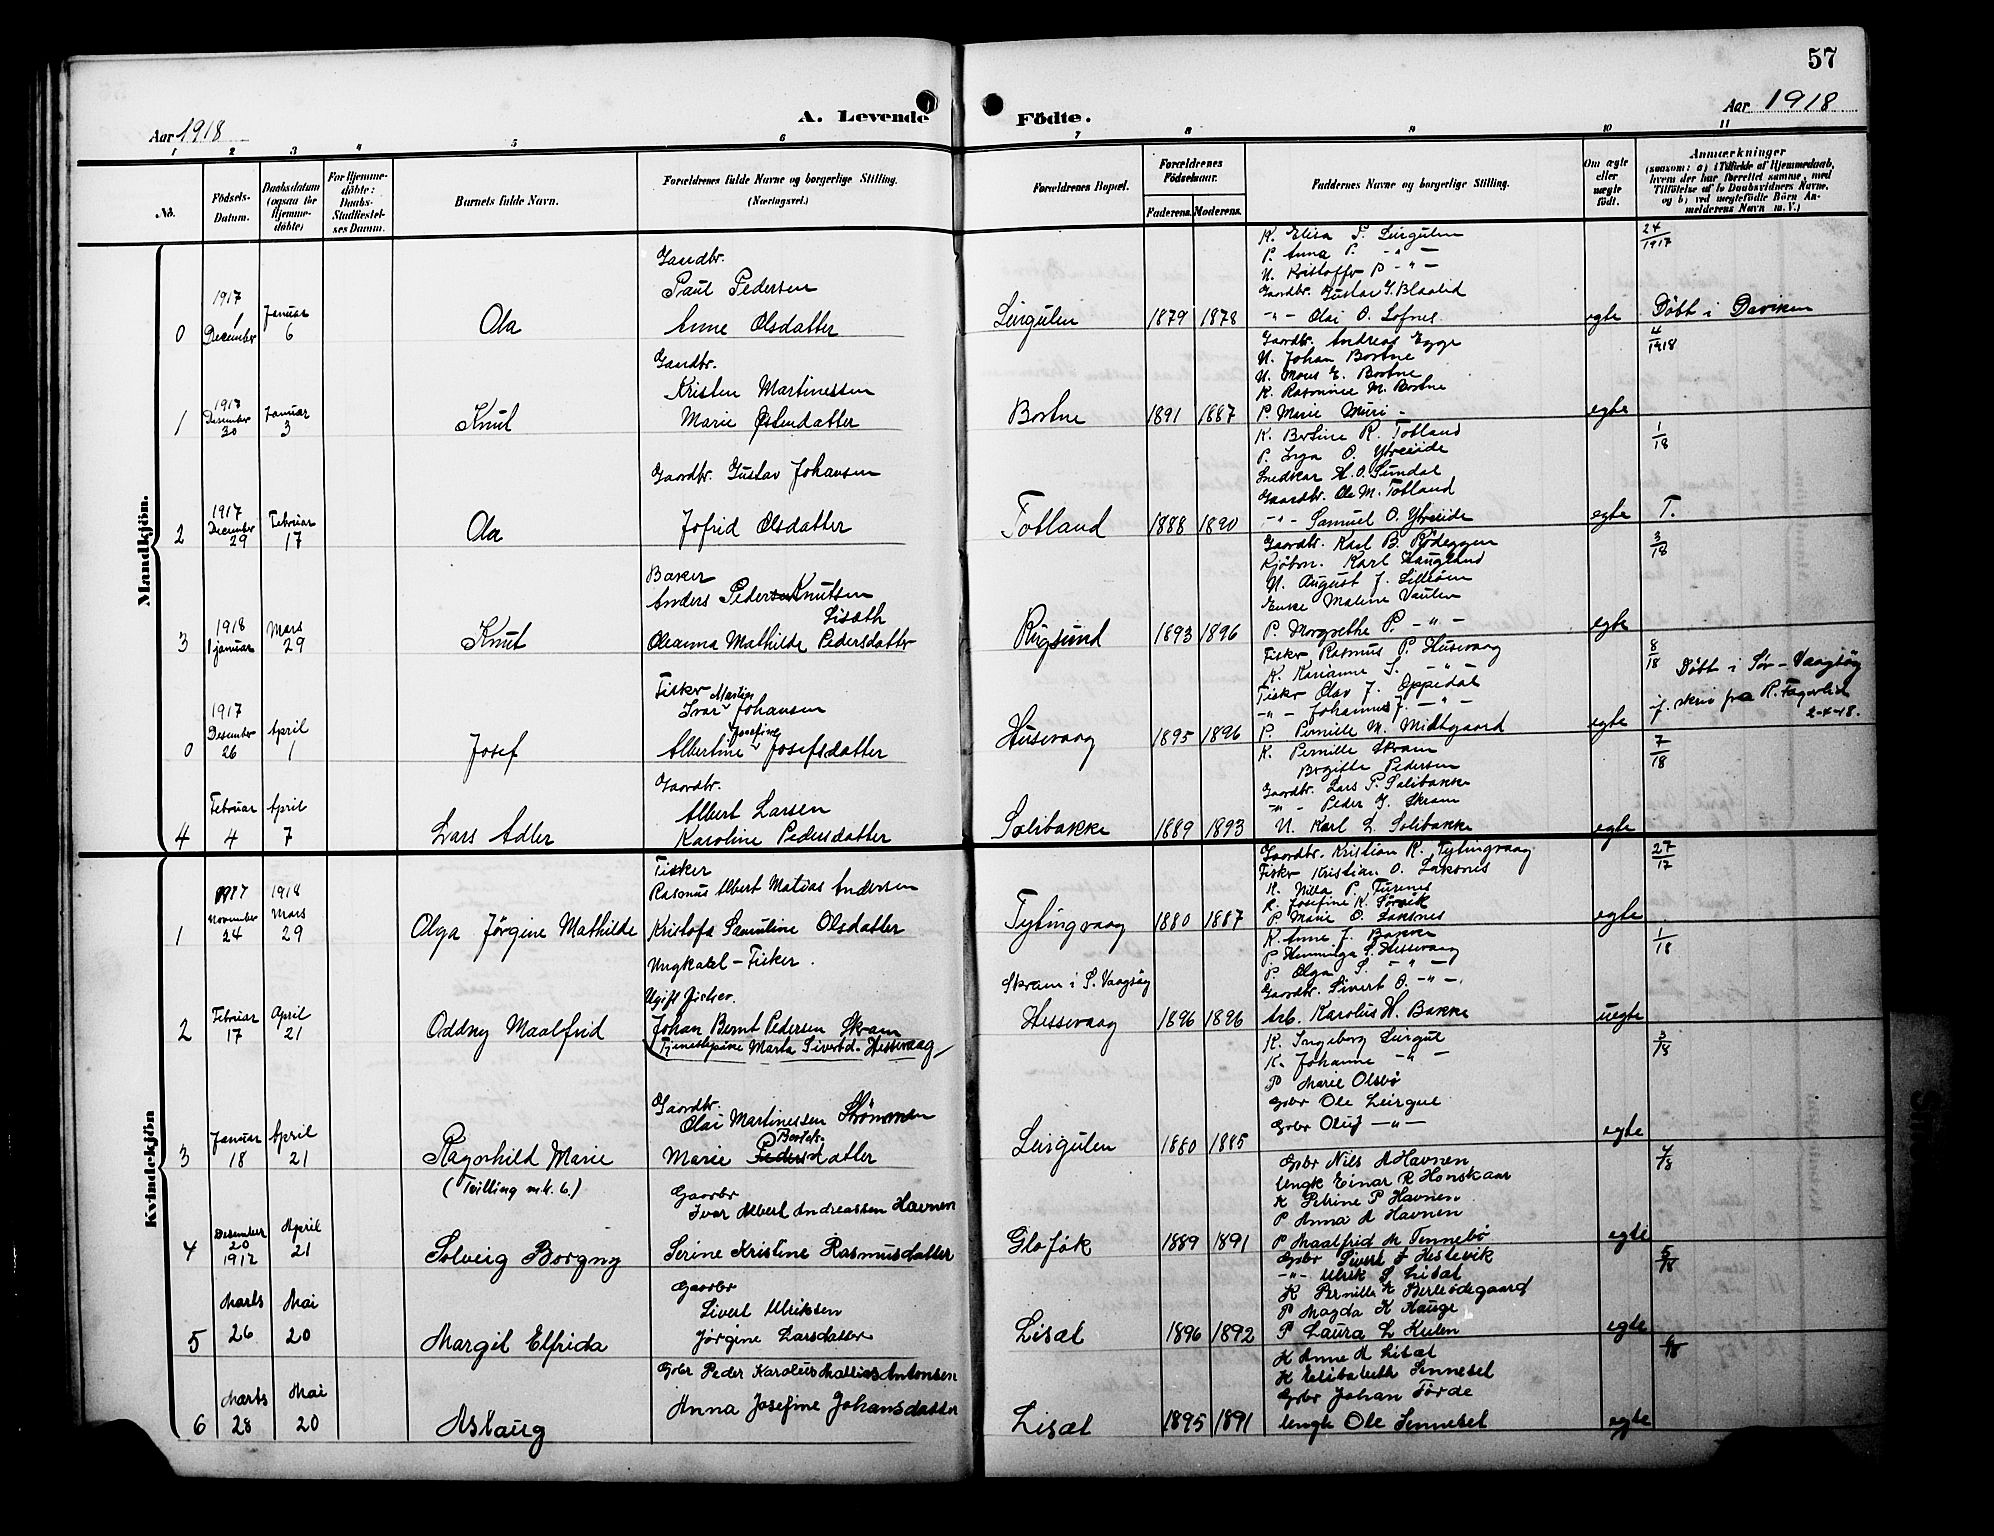 57
Aar 1918
A. Levende
Födte.
Aar 1918
1 2 3 4 5 6 7 8 9 10 11
No.
Födsels-
Datum.
Daabsdatum
(ogsaa for
Hjemme-
döbte)
For Hjemme-
döbte:
Daabs-
Stadfæstel-
ses Datum.
Barnets fulde Navn.
Forældrenes fulde Navne og borgerlige Stilling.
(Næringsvei.)
Forældrenes Bopæl.
Forældrenes
Födselsaar.
Faderens. Moderens.
Faddernes Navne og borgerlige Stilling.
Om ægte
eller
uægte
födt.
Anmærkninger
(saasom: a) i Tilfælde af Hjemmedaab,
hvem der har forrettet samme, med
Tilföielse af to Daabsvidners Navne,
og b) ved uægtefödte Börn An-
melderens Navn m. V.)
Mandkjön.
0
1917
1
December
Januar
6
Ola
Gaardbr.
Paul Pedersen
Anne Olsdatter
Leirgulen
1879 1878
K. Elisa P. Leirgulen
P. Anna P. -"-
U. Kristoffer P. -"-
Gaardbr. Gustav G. Blaalid
-"- Olai O. Lofnes
egte
24
1917
Döbt i Daviken
1
Desember
30
Januar
3
Knut
Gaardbr.
Kristen Martinessen
Marie Østendatter
Bortne
1891 1887
Gaardbr. Andreas Egge
U. Johan Bortne
U. Mons E. Bortne
K. Rasmine M. Bortne
P. Marie Muri
egte
4
1918
2
1917
December
29
Februar
17
Ola
Gaardbr. Gustav Johansen
Jofrid Olsdatter
Totland
1888 1890
K. Bertine R. Totland
P. Inga O. Ytreeide
Snedker H. O. Sundal
Gaardbr. Ole M. Totland
-"- Samuel O. Ytreeide
egte
1
18
T.
3
1918
1 januar
Mars
29
Knut
Baker
Anders Pedersen Knutsen
Lisæth
Oleanna Mathilde Pedersdatter
Rugsund
1893 1896
Gaardbr. Karl B. Rödeggen
Kjöbm. Karl Haugland
U. August J.
Enke Maline Vaulen
P. Margrethe P. -"-
egte
3
18
0
1917
Desember
26
April
1
Josef
Fisker
Martin
Ivar Johansen
Josefine
Albertine Josefsdatter
Husevaag
1895 1896
Fisker Rasmus P. Husevaag
K. Karianne S. -"-
Fisker Olav J. Oppedal
-"- Johannes J. -"-
P. Pernille M. Midtgaard
egte
8
18
Döbt i Sör-Vaagsöy
f. skriv fra R. Fagerlid
2-4-18.
4
Februar
4
April
7
Lars Adler
Gaardbr.
Albert Larsen
Karoline Pedersdatter
Solibakke
1889 1893
K. Pernille Skram
Birgitte Pedersen
Gaardbr. Lars P. Solibakke
-"- Peder G. Skram
U. Karl L. Solibakke
egte
7
18
Kvindekjön
1
1917
November
24
1918
Mars
29
Olga Jörgine Mathilde
Fisker
Rasmus Albert Matias Andersen
Kristofa Samuline Olsdatter
Tytingvaag
1880 1887
Gaardbr. Kristian R. Tytingvaag
Fisker Kristian O. Laksnes
K. Nilla P. Furenes
K. Josefine K. Sörvik
P. Marie O. Laksnes
egte
27
17
2
Februar
17
April
21
Oddney Maalfrid
Ungkarl - Fisker.
Ugift fisker.
Johan Bernt Pedersen Skram
Tjenestepike Marta Sivertd. Hessevaag
Skram i S. Vaagsöy
Hessevaag
1896 1896
K. Anne J. Bakke
P. Hemminga S. Hessevaag
P. Olga S. -"-
Gaardbr. Sivert O. -"-
Arb. Karolus H. Bakke
uegte
1
18
3
Januar
18
April
21
Ragnhild Marie
(Tvilling m k. 6.)
Gaardbr.
Olai Martinessen Strömmen
Bertels-
Marie Pedersdatter
Leirgulen
1880 1885
K. Ingeborg Leirgul
K. Johanne -"-
P Marie Olsbö
Gbr Ole Leirgul
Gbr Oluf -"-
egte
3
18
4
Desember
20
1917
April
21
Solveig Borgny
Gaarbr
Ivar Albert Andreassen Havnen
Serine Kristine Rasmusdatter
1889 1891
Gbr Nils A Havnen
Ungk Einar R Honskaar
K Petrine P Havnen
P Anna A Havnen
P Maalfrid M Tennebö
egte
4
18
5
Marts
26
Mai
20
Margit Elfrida
Gaarbr
Sivert Ulriksen
Jörgine Larsdatter
Lisæt
1896 1892
Gbr Sivert J Hestevik
-"- Ulrik S Lisæt
K Pernille K Berleodegaard
P Magda K Hauge
P Laura L Kulen
egte
5
18
6
Marts
28
Mai
20
Aslaug
Gbr Peder Karolus Mattias Antonsen
Anna Josefine Johansdatter
Lisæt
1895 1891
K Anne A Lisæt
K Elisabeth Sennesel
Gbr Johan Förde
Ungk Ole Sennesel
egte